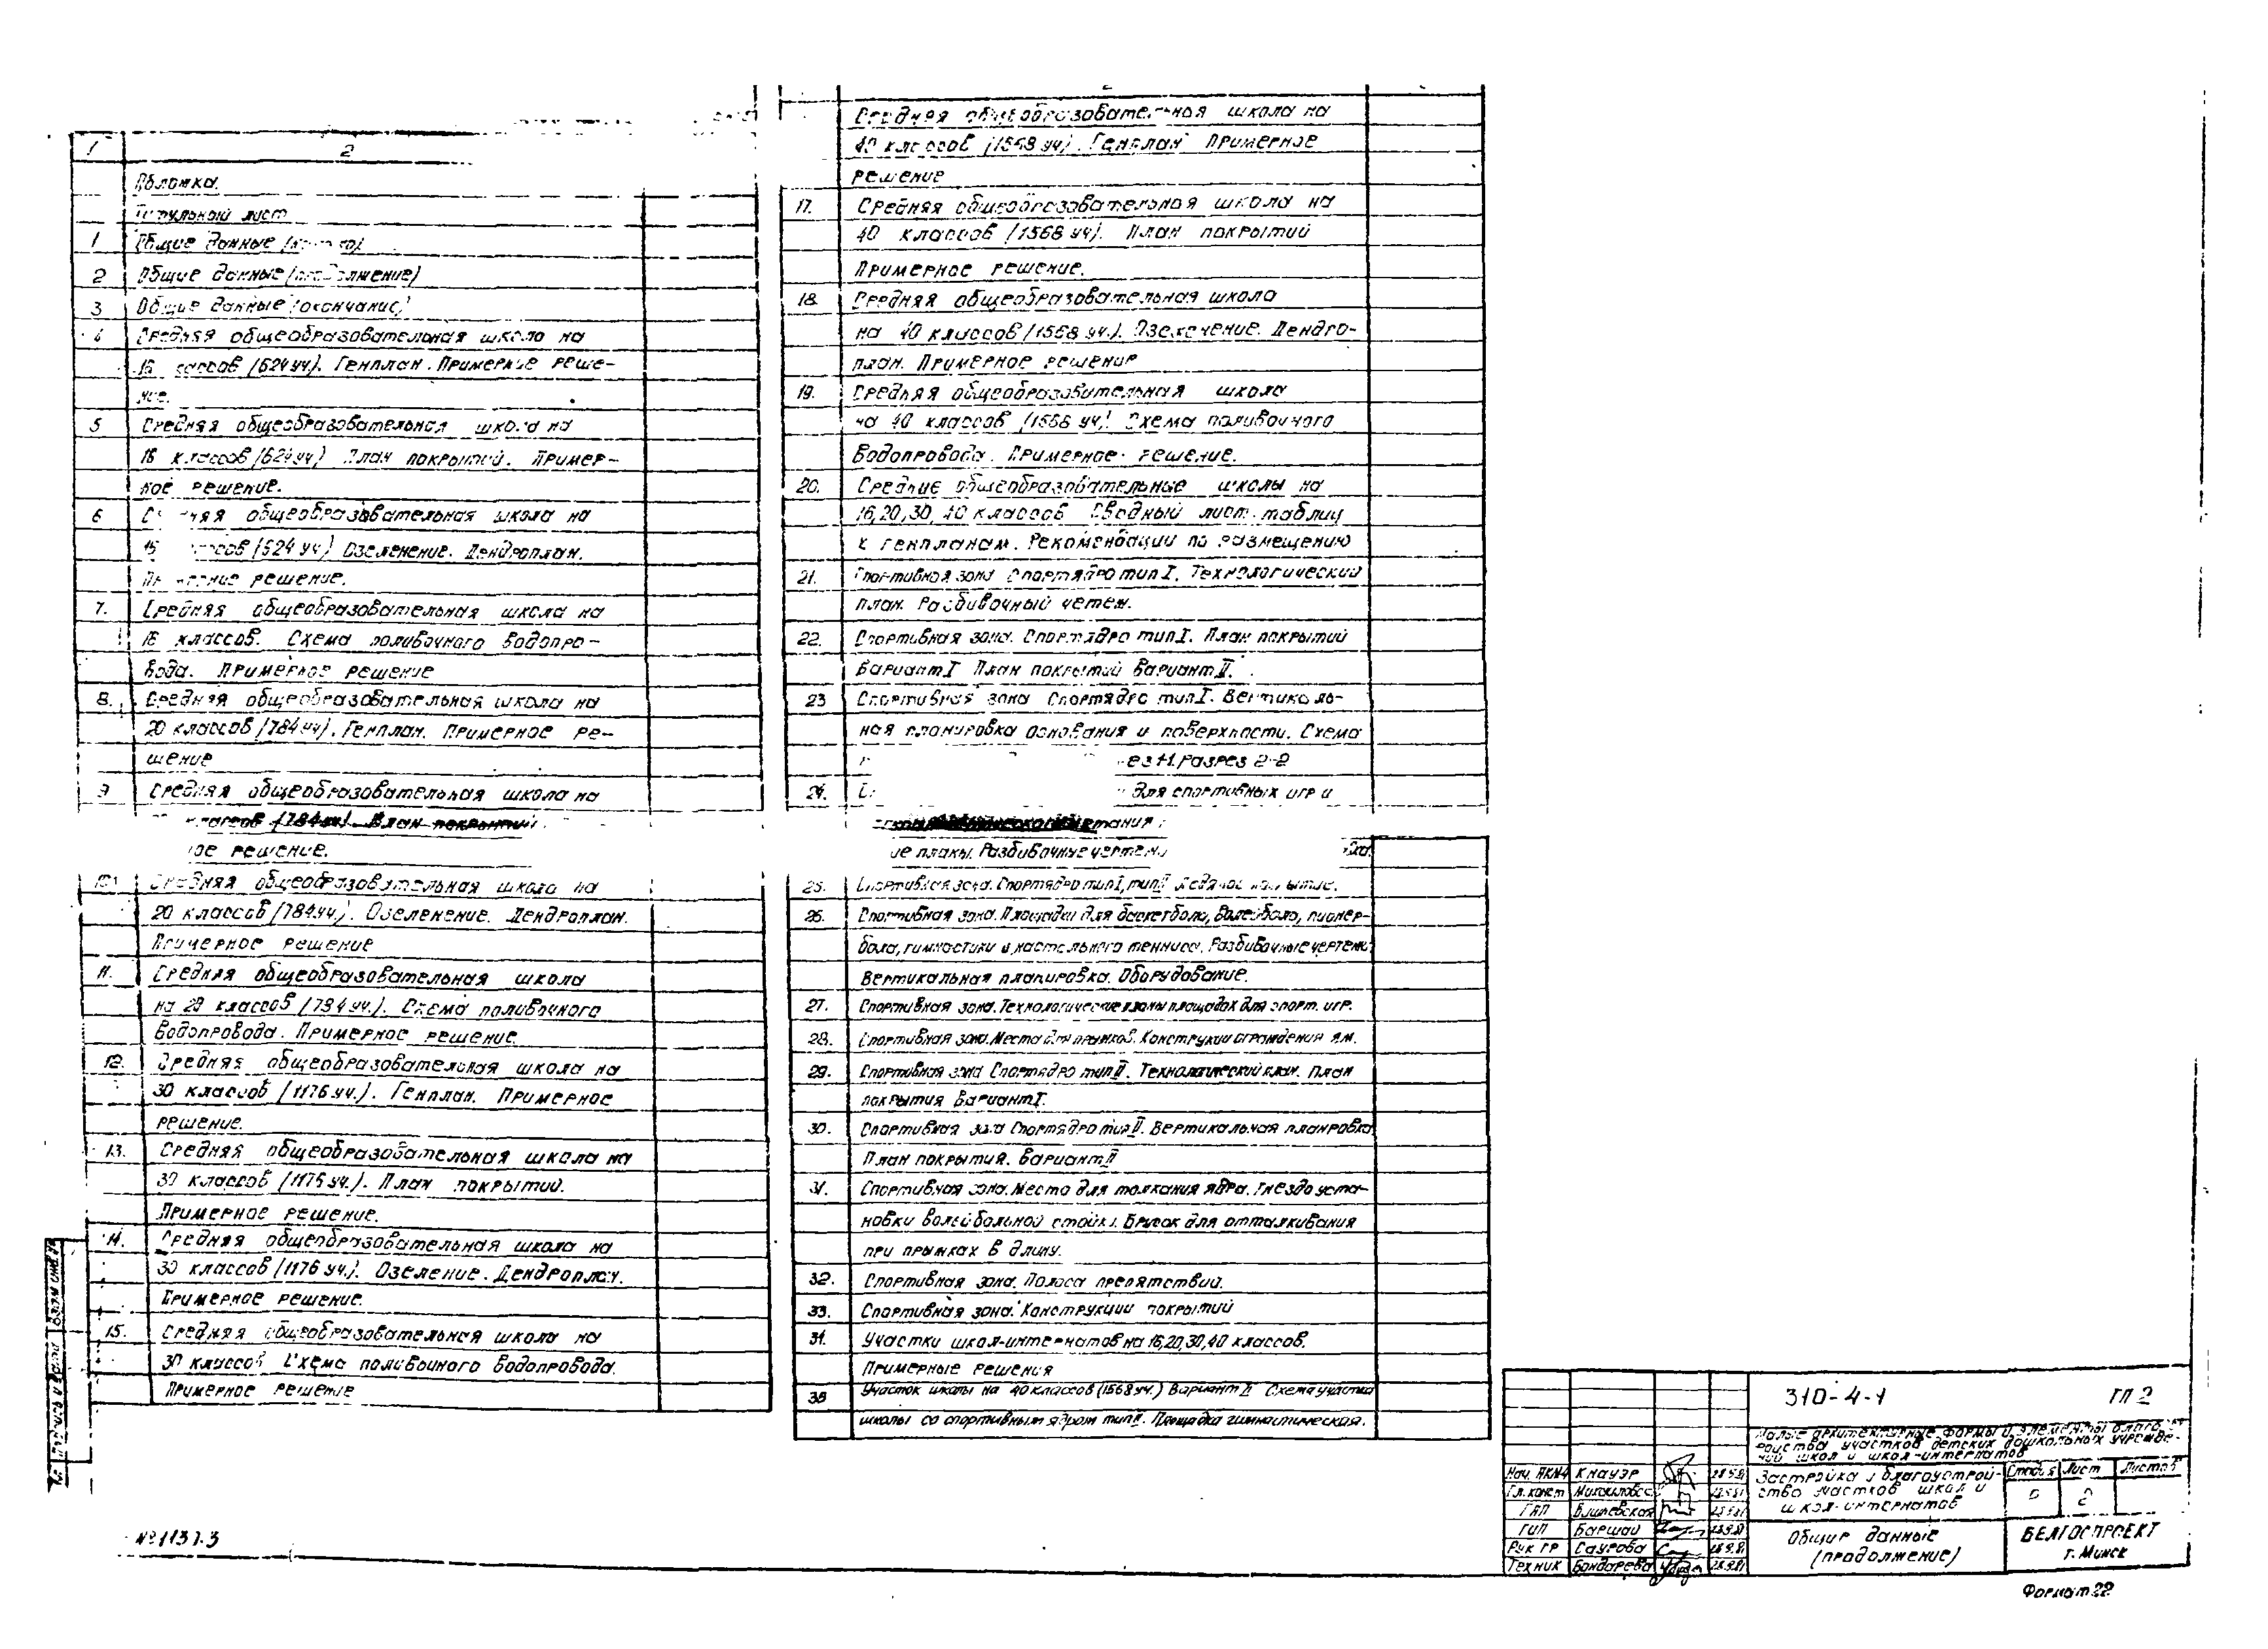 1 2
Обложка.
Титульный лист
1 Общие данные
2 Общие данные (продолжение)
3 Общие данные (окончание)
4 Средняя общеобразовательная школа на
16 (624 уч). Генплан. Примерное реше-
ние.
5 Средняя общеобразовательная школа на
16 классов (624 уч) План покрытий. Пример-
ное решение.
6 Средняя общеобразовательная школа на
(624 уч) Озеленение. Дендроплан.
решение.
7. Средняя общеобразовательная школа на
16 классов. Схема поливочного водопро-
вода. Примерное решение
8. Средняя общеобразовательная школа на
20 классов (784 уч). Генплан. Примерное ре-
шение
9 Средняя общеобразовательная школа на
классов (784 уч). План покрытий.
решение.
10. Средняя общеобразовательная школа на
20 классов (784 уч.). Озеленение. Дендроплан.
Примерное решение
11. Средняя общеобразовательная школа
на 20 классов (784 уч.). Схема поливочного
водопровода. Примерное решение
12. Средняя общеобразовательная школа на
30 классов (1176 уч.). Генплан. Примерное
решение.
13. Средняя общеобразовательная школа на
30 классов (1176 уч.). План покрытий.
Примерное решение.
14. Средняя общеобразовательная школа на
30 классов (1176 уч.). Озеление. Дендроплан.
Примерное решение.
15. Средняя общеобразовательная школа на
30 классов Схема поливочного водопровода.
Примерное решение
Средняя общеобразовательная школа на
40 классов (1568 уч). Генплан Примерное
решение
17. Средняя общеобразовательная школа на
40 классов (1568 уч). План покрытий
Примерное решение.
18. Средняя общеобразовательная школа
на 40 классов (1568 уч.). Озеленение. Дендро-
план. Примерное решение
19. Средняя общеобразовательная школа
на 40 классов (1568 уч) Схема поливочного
водопровода. Примерное решение.
20. Средние общеобразовательные школы на
16,20,30,40 классов Сводный лист таблиц
к генпланам. Рекомендации по размещению
21. Спортивная зона Спортядро тип I. Технологический
план. Разбивочный четеж.
22. Спортивная зона. Спортядро тип I. План покрытий
Вариант I План покрытий Вариант II.
23 Спортивная зона Спортядро тип I. Вертикаль-
ная планировка основания и поверхности. Схема
Разрез 2-2
24. для спортивных игр и
планы. Разбивочные чертежи
25. Спортивная зона. Спортядро тип I, тип II Ледяное покрытие.
26. Спортивная зона. Площадки для баскетбола, волейбола, пионер-
бола, гимнастики и настольного тенниса. Разбивочные чертежи.
Вертикальная планировка. Оборудование.
27. Спортивная зона. Технологические планы площадок для спорт. игр.
28. Спортивная зона. Места для прыжков. Конструкции ограждения ям.
29. Спортивная зона Спортядро тип II. Технологический план. План
покрытия Вариант I.
30. Спортивная зона Спортядро тип II. Вертикальная планровка
План покрытия. Вариант II
31. Спортивная зона. Место для толкания ядра. Гнездо уста-
новки волейбольной стойки. Брусок для отталкивания
при прыжках в длину.
32. Спортивная зона. Полоса препятствий.
33. Спортивная зона. Конструкции покрытий
34. Участки школ-интернатов на 16,20,30,40 классов.
Примерные решения
35 Участок школы на 40 классов (1568 уч.) Вариант II Схема участка
школы со спортивным ядром тип II. Площадка гимнастическая.
310-4-1 ГП 2
Малые архитектурные формы и элементы благоуст-
ройства участков детских дошкольных учрежде-
ний школ и школ-интернатов
Застройка и благоустрой-
ство участков школ и
школ-интернатов
Стадия Лист Листов
2
Общие данные
(продолжение)
БЕЛГОСПРОЕКТ
г. Минск
Нач. АКМ4 Кнауэр
Гл. конст
ГАП
ГИП Баршай
Рук гр Саурова
Техник Бондарева
Формат 22